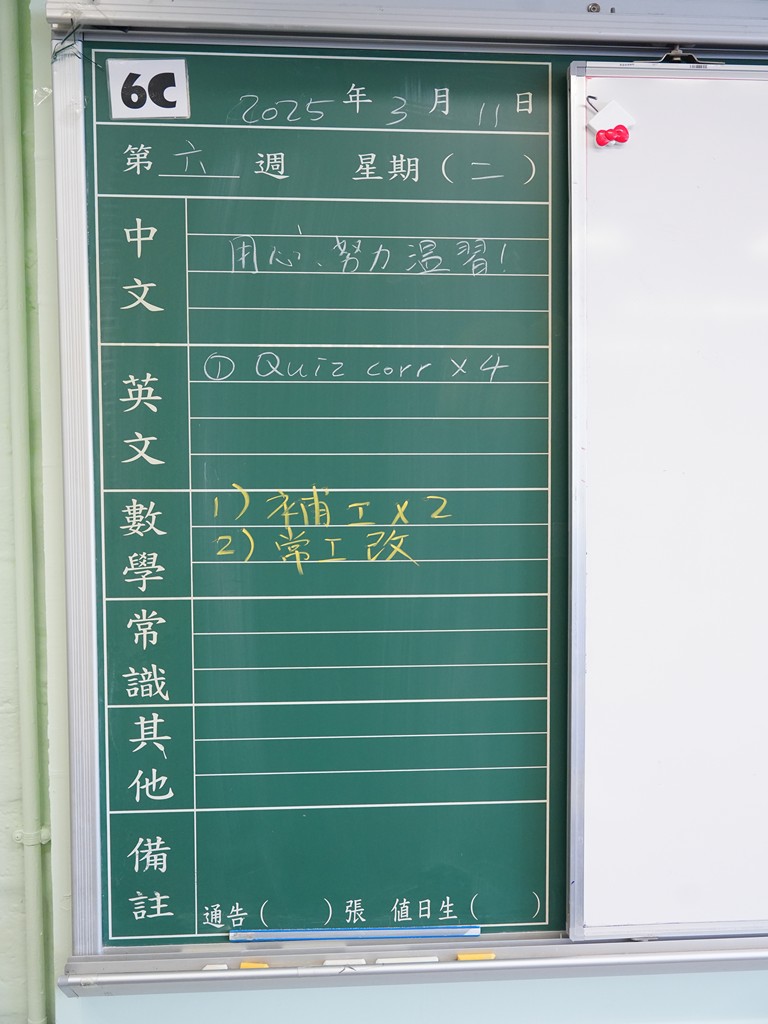 6C
2025年3月11日
第六週 星期(二)
中文
用心、努力溫習!
英文
① Quiz corr x 4
數學
1) 補工 x 2
2) 常工改
常識
其他
備註
通告( )張 值日生( )